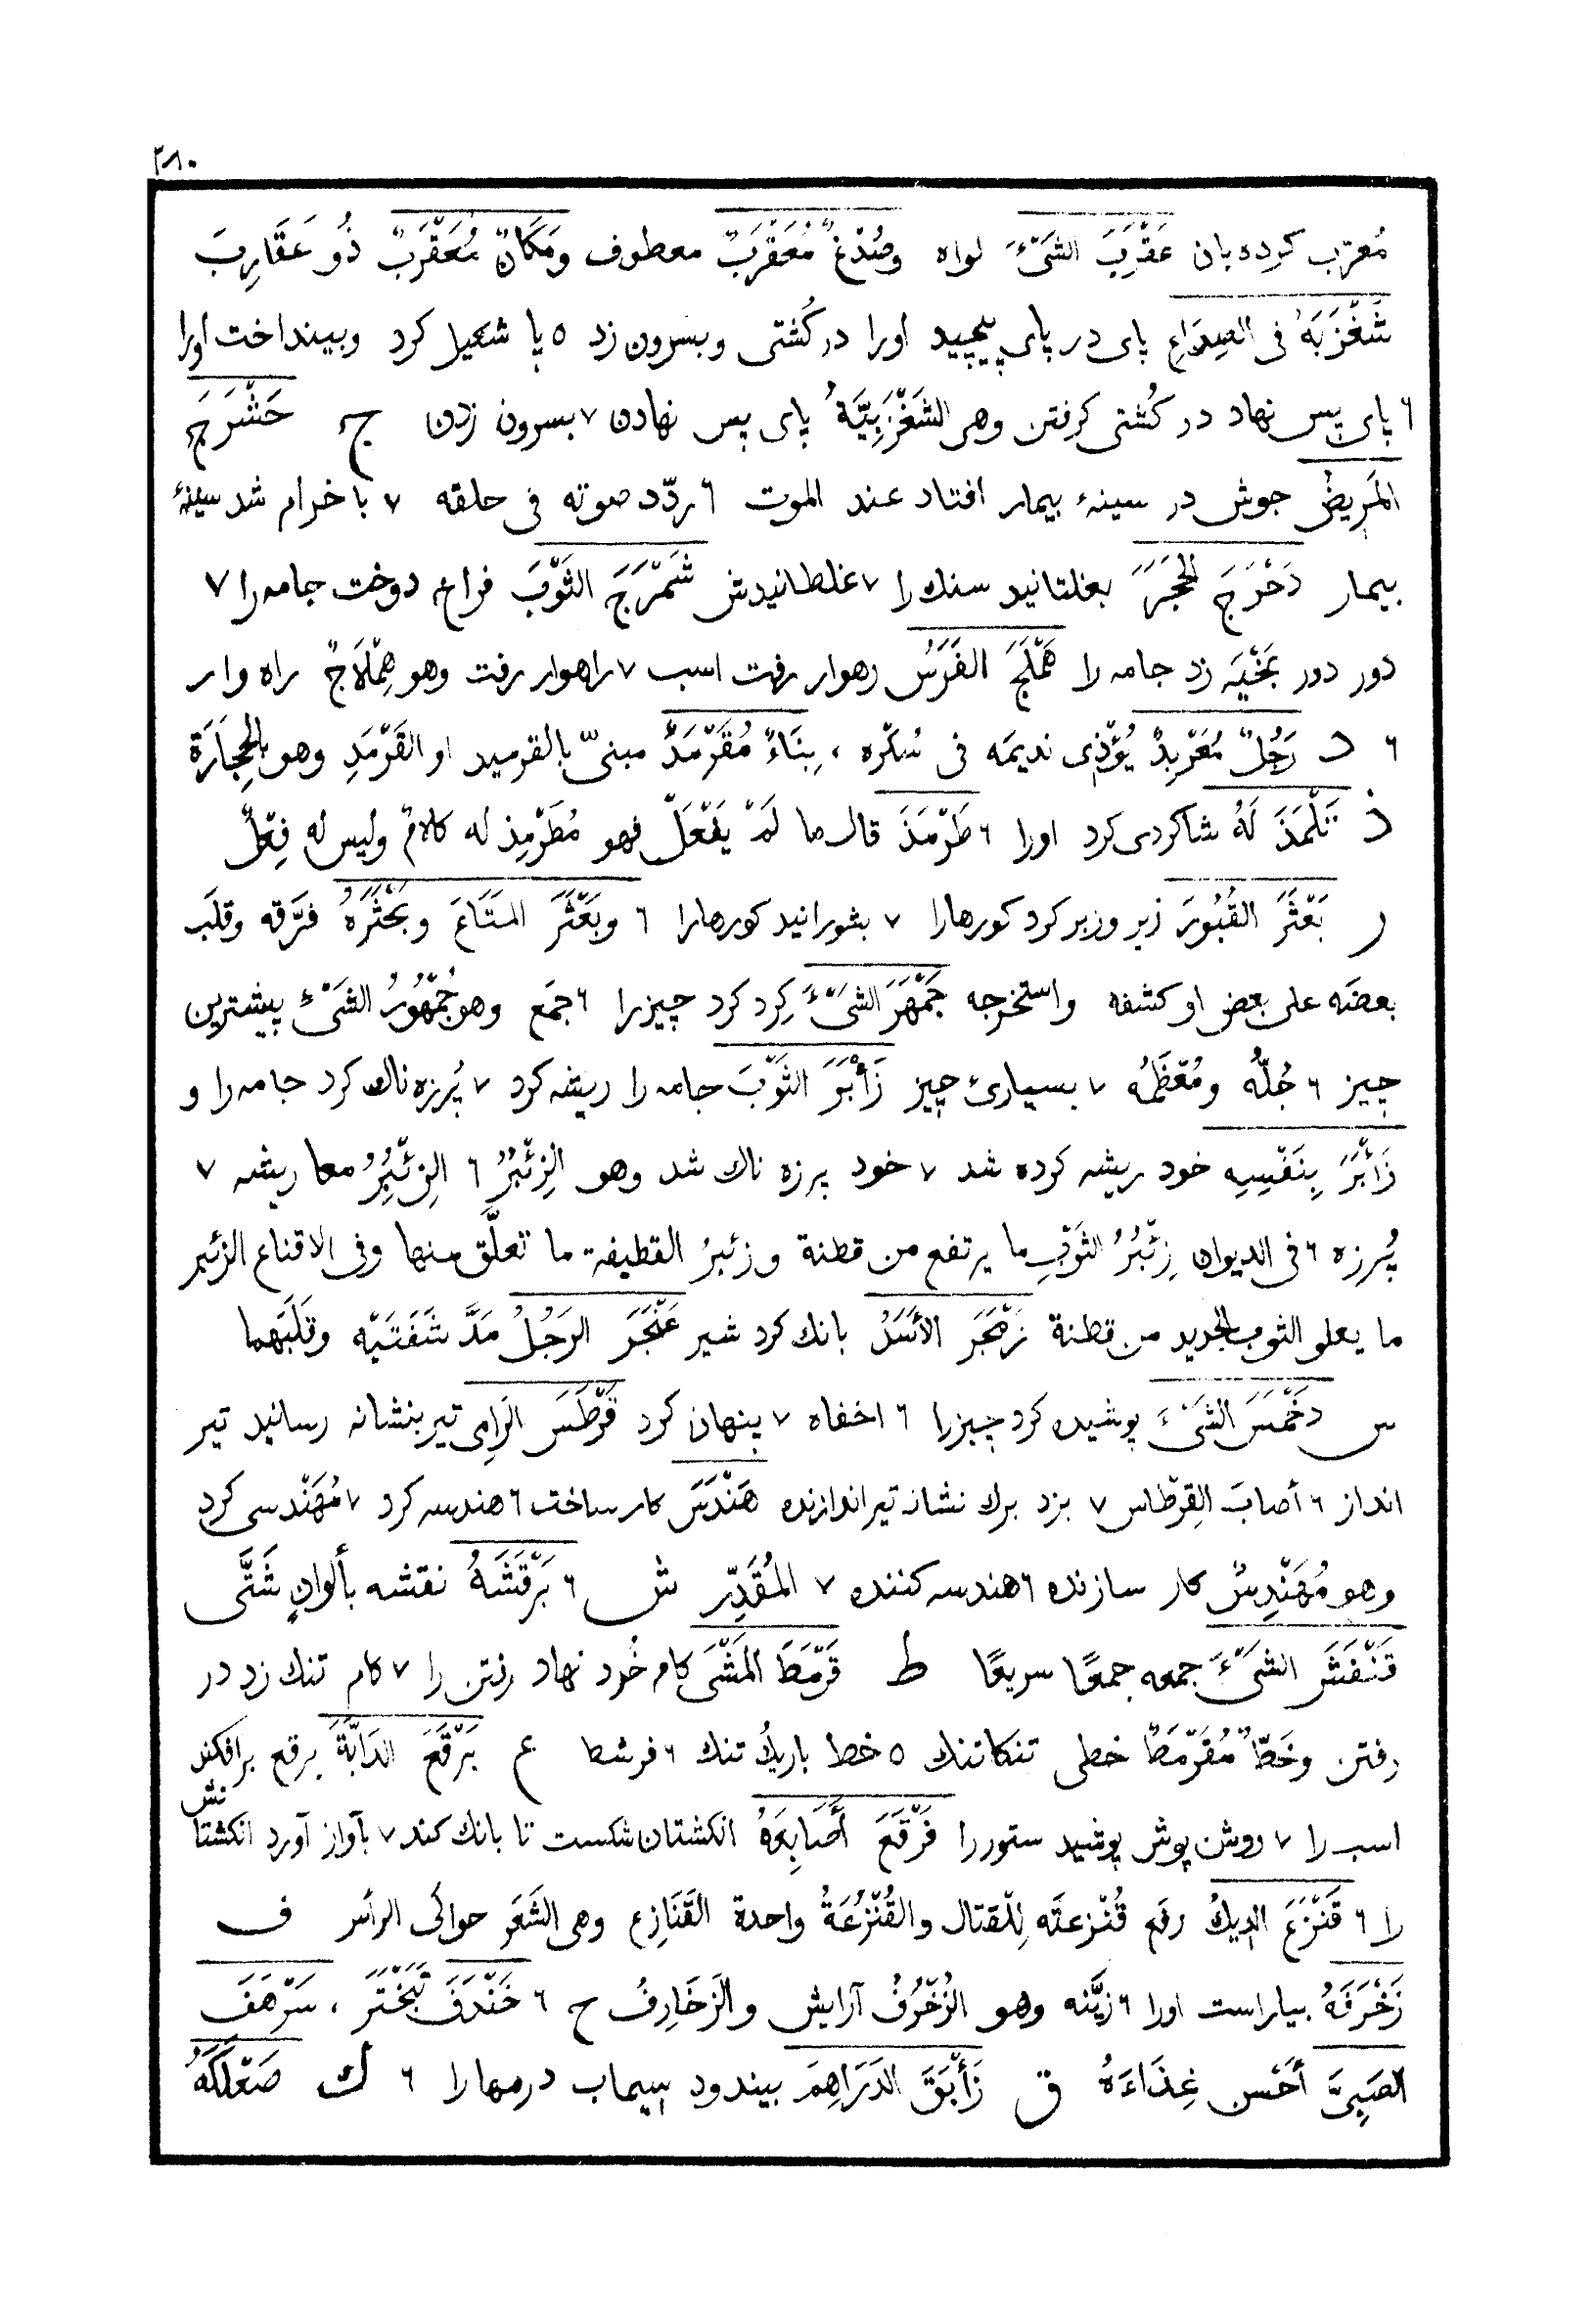 ٢٨٠
مُعرّب کرده بان عَقْرَبَ الشَیْءَ لواه وصُدْغٌ مُعَقْرَبٌ معطوف ومَکَانٌ مُعَقْرَبٌ ذُو عَقَارِبَ
شَغْزَبَهُ فی الصِرَاعِ پای در پای پیچید اورا در کُشتی وبسرون زد ٥ پا شغیل کرد وبینداخت اورا
٦ پای پس نهاد در کُشتی کرفتن وهی الشَغْزَبِیَّةُ پای پس نهادن ٧ بسرون زدن ج حَشْرَجَ
المَرِیضُ جوش در سینهٔ بیمار افتاد عند الموت ٦ ردّد صوته فی حلقه ٧ با خرام شد سینهٔ
بیمار دَحْرَجَ الحَجَرَ بغلتانید سنك را ٧ غلطانیدش شَمْرَجَ الثَوْبَ فراخ دوخت جامه را ٧
دور دور بَخْیَه زد جامه را هَمْلَجَ الفَرَسُ رهوار رفت اسب ٧ راهوار رفت وهو هِمْلَاجٌ راه وار
٦ د رَجُلٌ مُعَرْبِدٌ یُؤْذِی ندیمَه فی سُکْرِه ، بِنَاءٌ مُقَرْمَدٌ مبنیّ بالقرمید او القَرْمَدِ وهو بالحِجَارَة
ذ تَلْمَذَ لَهُ شاکردی کرد اورا ٦ طَرْمَذَ قال ما لَمْ یَفْعَلْ فهو مُطَرْمِذ له کلامٌ ولیس له فِعْلٌ
ر بَعْثَرَ القُبُورَ زیر وزبر کرد کورهارا ٧ بشورانید کورهارا ٦ وبَعْثَرَ المَتَاعَ وبَحْثَرَهُ فرَّقه وقلَب
بعضَه علی بعض او کشفه واستخرجه جَمْهَرَ الشَیْءَ کِرد کرد چیزرا ٦ جمَع وهو جُمْهُورُ الشَیْءِ بیشترین
چیز ٦ جُلّهُ ومُعْظَمُه ٧ بسیاریٔ چیز زَأْبَرَ الثَوْبَ جامه را ریشه کرد ٧ پُرزه ناك کرد جامه را و
زَأْبَرَ بِنَفْسِهِ خود ریشه کرده شد ٧ خود پرزه ناك شد وهو الزِئْبَرُ ٦ الزِئْبِرُ معا ریشه ٧
پُرزه ٦ فی الدیوان زِئْبُرُ الثَوْبِ ما یرتفع من قطنة وزئبرُ القطیفة ما تعلَّق منها وفی الاقناع الزئبر
ما یعلو الثوب الجدید من قطنة زَمْجَرَ الأَسَدُ بانك کرد شیر عَنْجَرَ الرَجُلُ مَدَّ شَفَتَیْه وقَلَبَهما
س دَخْمَسَ الشَیْءَ پوشیده کرد چیزرا ٦ اخفاه ٧ پنهان کرد قَرْطَسَ الرَامِی تیر بنشانه رسانید تیر
انداز ٦ أصابَ القِرْطاس ٧ بزد برك نشانه تیر اندازنده هَنْدَسَ کار ساخت ٦ هندسه کرد ٧ مُهَنْدسی کرد
وهو مُهَنْدِسٌ کار سازنده ٦ هندسه کننده ٧ المُقَدِّر ش ٦ بَرْقَشَهُ نقشه بألوانٍ شَتَّی
قَنْفَشَ الشَیْءَ جمعه جمعًا سریعًا ط قَرْمَطَ المَشْیَ کام خُرد نهاد رفتن را ٧ کام تنك زد در
رفتن وخَطٌّ مُقَرْمَطٌ خطی تنکاتنك ٥ خط باریك تنك ٦ فرشط ع بَرْقَعَ الدَابَّةَ برقع برافکند
اسب را ٧ روش پوش پوشید ستوررا فَرْقَعَ أَصَابِعَهُ انکشتان شکست تا بانك کند ٧ بآواز آورد انکشتانش
را ٦ قَنْزَعَ الدِیكُ رفع قُنْزعتَه لِلقتال والقُنْزُعَةُ واحدة القَنَازِع وهی الشَعَر حوالَی الرأس ف
زَخْرَفَهُ بیاراست اورا ٦ زیَّنه وهو الزُخْرُفُ آرایش والزَخَارِفُ ج ٦ خَنْدَفَ تَبَخْتَرَ ، سَرْهَفَ
الصَبِیَّ أَحْسن غِذَاءَهُ ق زَأْبَقَ الدَرَاهِمَ بیندود سیماب درمهارا ٦ ك صَعْلَكَهُ